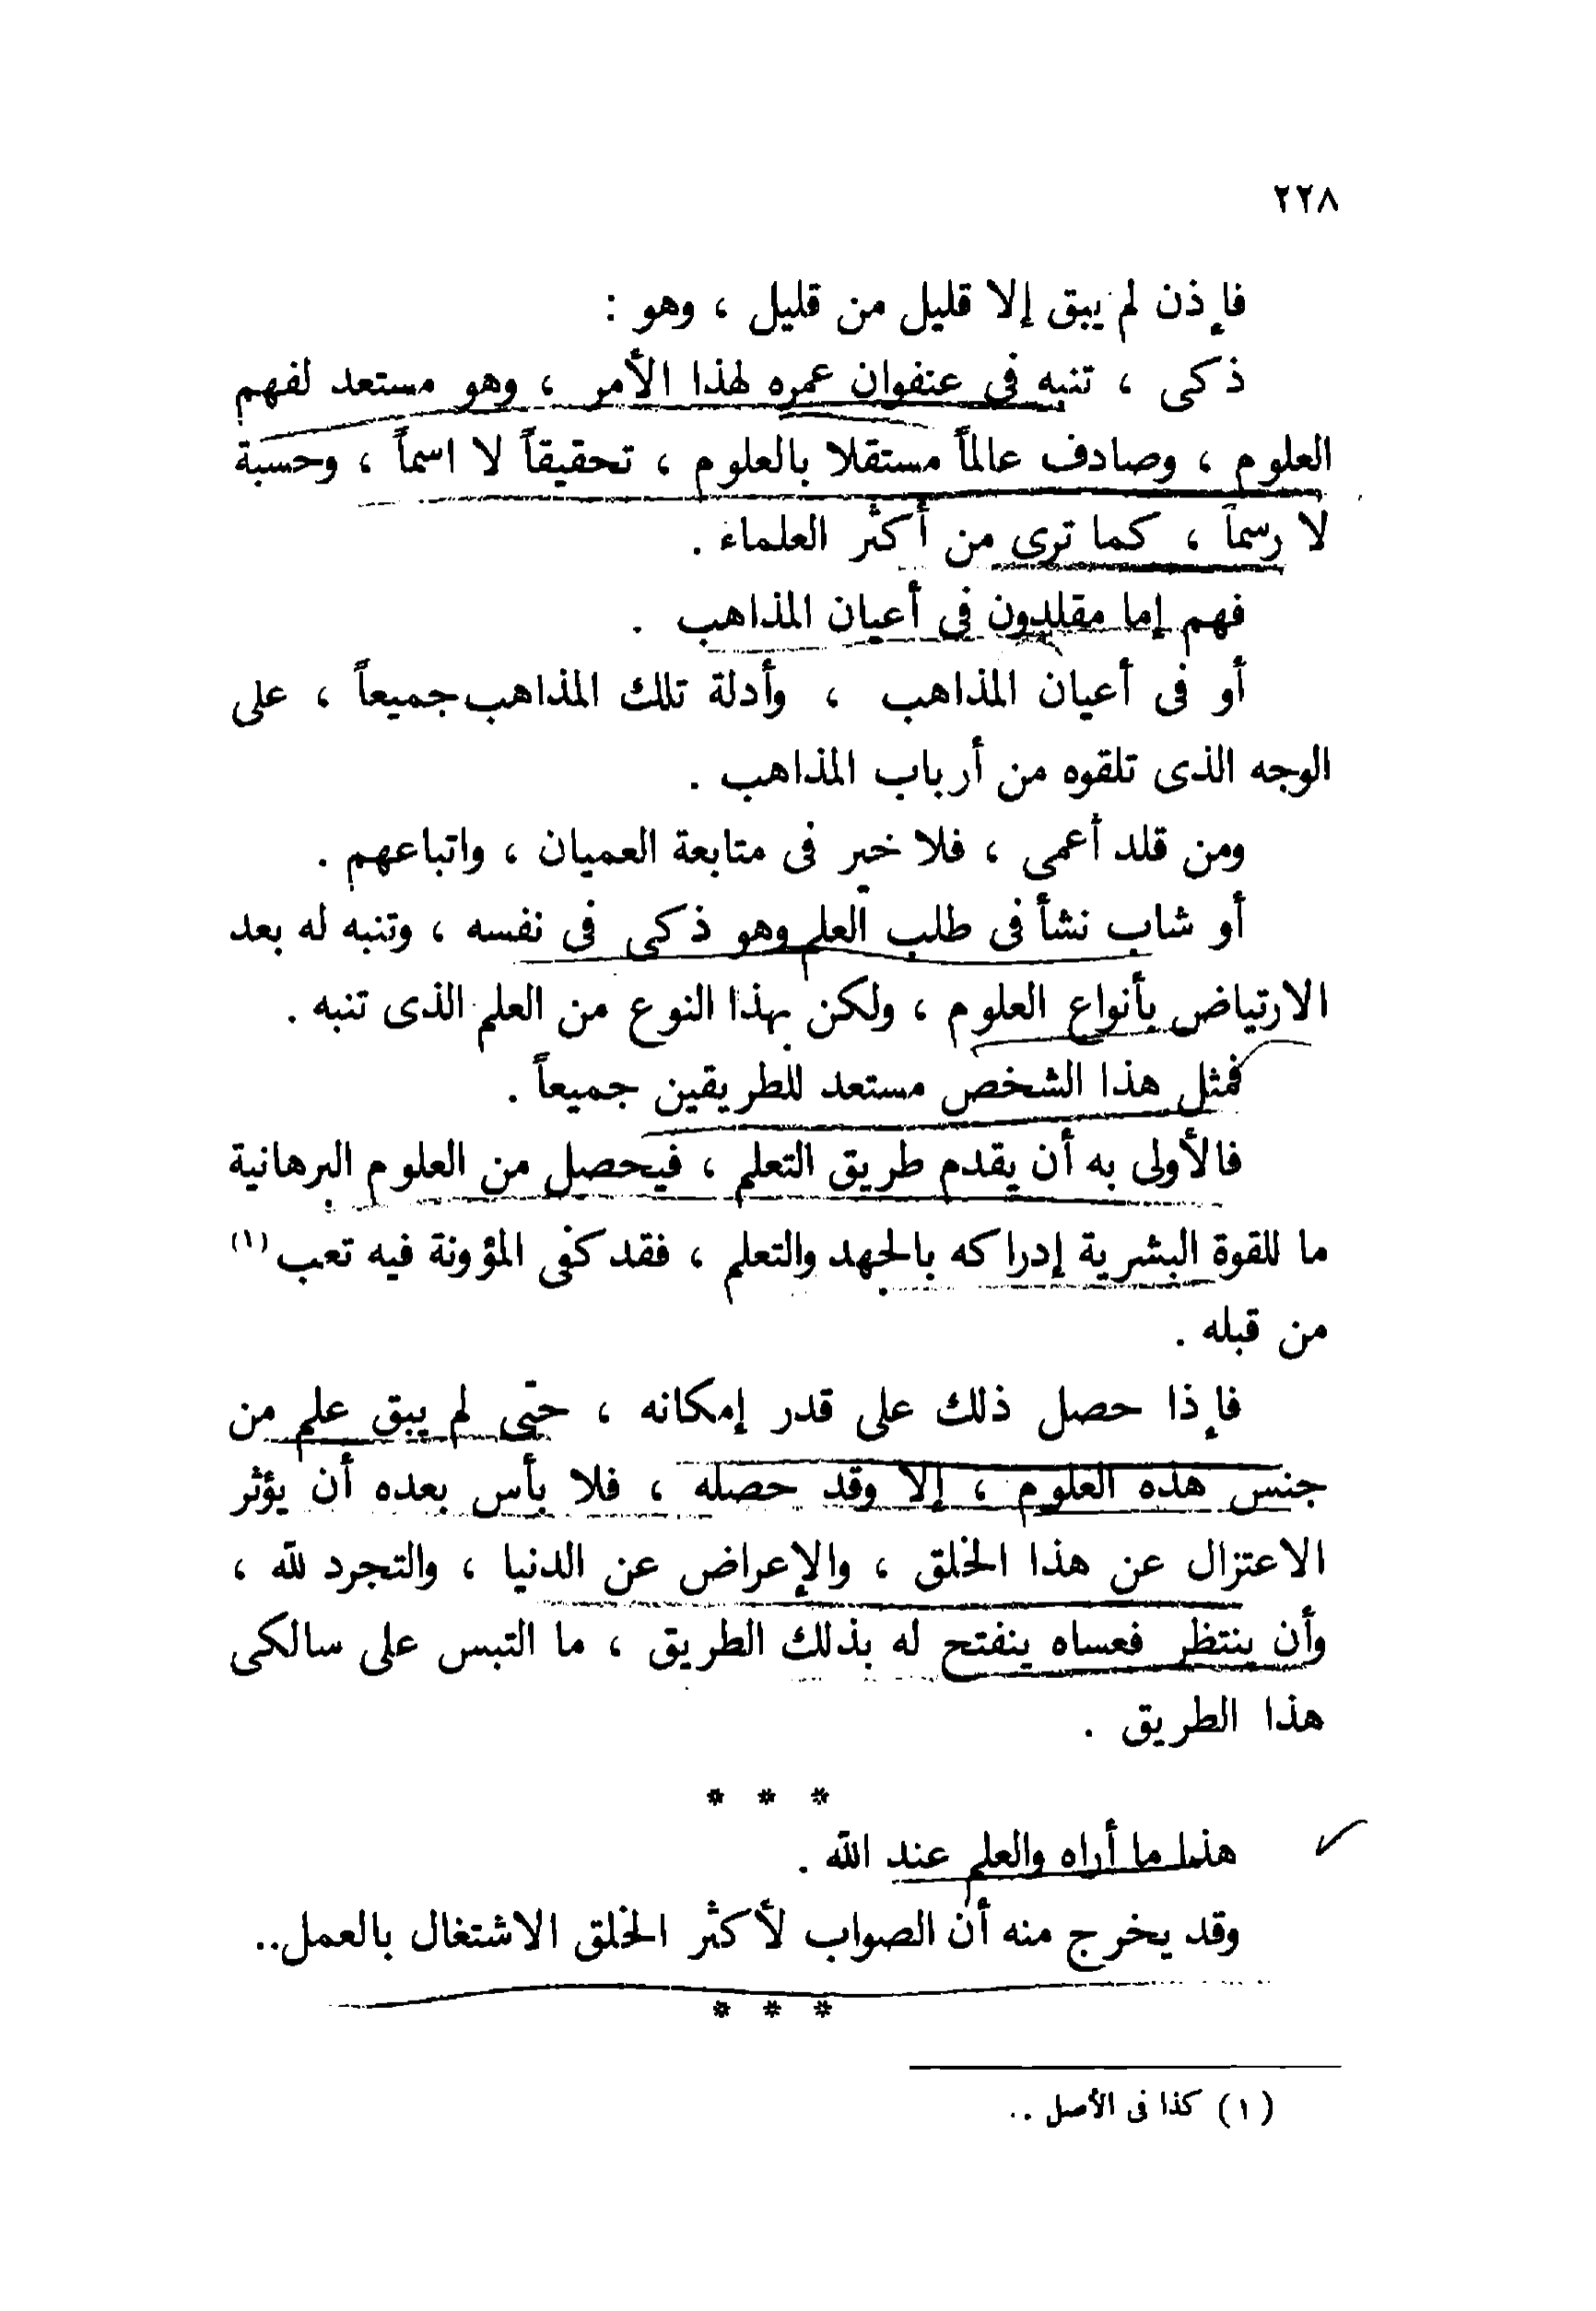 ٢٢٨
فإذن لم يبق إلا قليل من قليل ، وهو :
ذكى ، تنبه فى عنفوان عمره لهذا الأمر ، وهو مستعد لفهم
العلوم ، وصادف عالماً مستقلا بالعلوم ، تحقيقاً لا اسماً ، وحسبة
لا رسماً ، كما ترى من أكثر العلماء .
فهم إما مقلدون فى أعيان المذاهب .
أو فى أعيان المذاهب ، وأدلة تلك المذاهب جميعاً ، على
الوجه الذى تلقوه من أرباب المذاهب .
ومن قلد أعمى ، فلا خير فى متابعة العميان ، واتباعهم .
أو شاب نشأ فى طلب العلم وهو ذكى فى نفسه ، وتنبه له بعد
الارتياض بأنواع العلوم ، ولكن بهذا النوع من العلم الذى تنبه .
فمثل هذا الشخص مستعد للطريقين جميعاً .
فالأولى به أن يقدم طريق التعلم ، فيحصل من العلوم البرهانية
ما للقوة البشرية إدراكه بالجهد والتعلم ، فقد كفى المؤونة فيه تعب (١)
من قبله .
فإذا حصل ذلك على قدر إمكانه ، حتى لم يبق علم من
جنس هذه العلوم ، إلا وقد حصله ، فلا بأس بعده أن يؤثر
الاعتزال عن هذا الخلق ، والإعراض عن الدنيا ، والتجرد لله ،
وأن ينتظر فعساه ينفتح له بذلك الطريق ، ما التبس على سالكى
هذا الطريق .
* * *
هذا ما أراه والعلم عند الله .
وقد يخرج منه أن الصواب لأكثر الخلق الاشتغال بالعمل..
* * *
(١) كذا فى الأصل ..